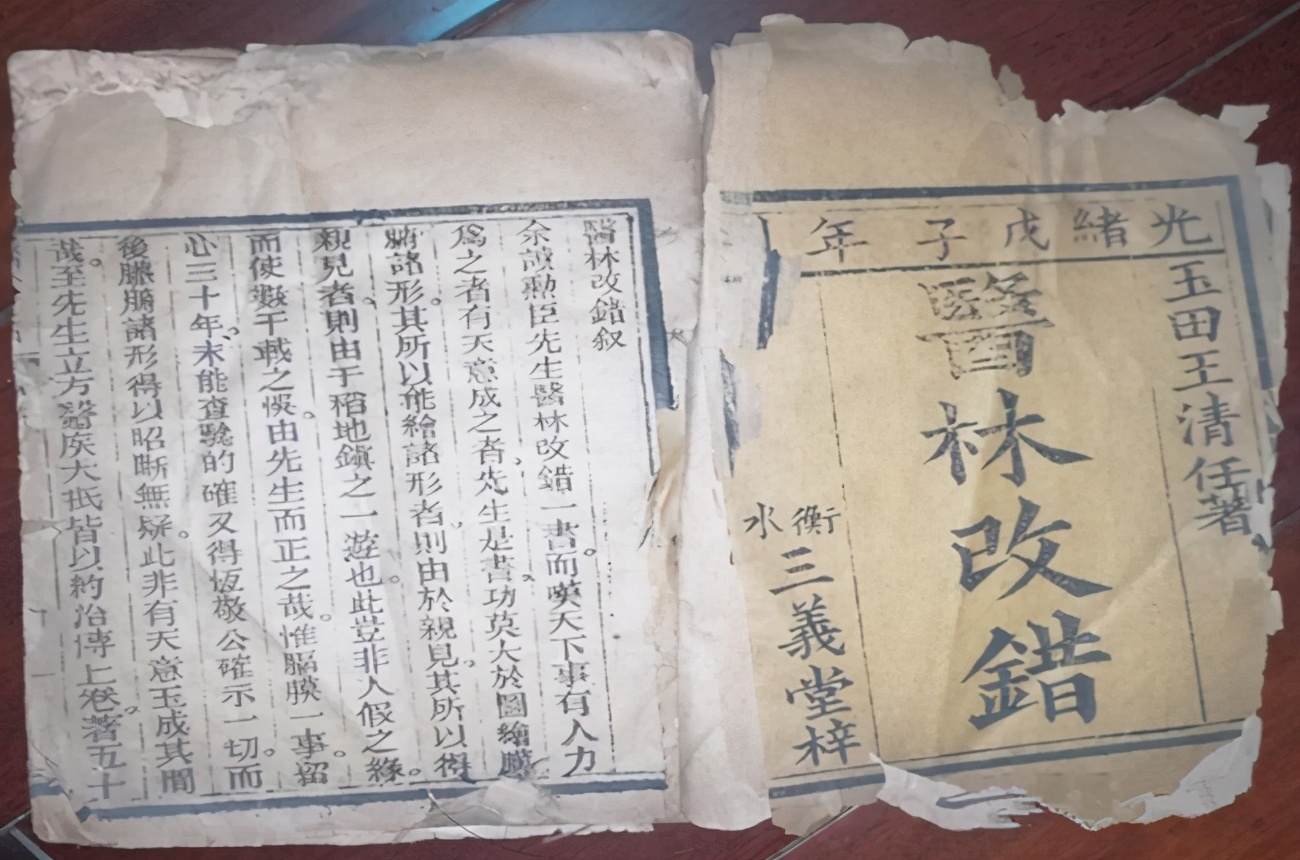 光緒戊子年
玉田王清任著
醫林改錯
衡水
三義堂梓
醫林改錯叙
余讀勲臣先生醫林改錯一書。而嘆天下事有人力
爲之者有天意成之者、先生是書、功莫大於圖繪臟
腑諸形。其所以能繪諸形者、則由於親見。其所以得
親見者、則由于稻地鎮之一遊也。此豈非人假之緣。
而使數千載之悞。由先生而正之哉。惟膈膜一事。留
心三十年、未能查驗的確又得恆敬公確示一切。而
後臟腑諸形得以昭晰無疑。此非有天意玉成其間
哉。至先生立方醫疾大抵皆以約治傅上卷。著五十